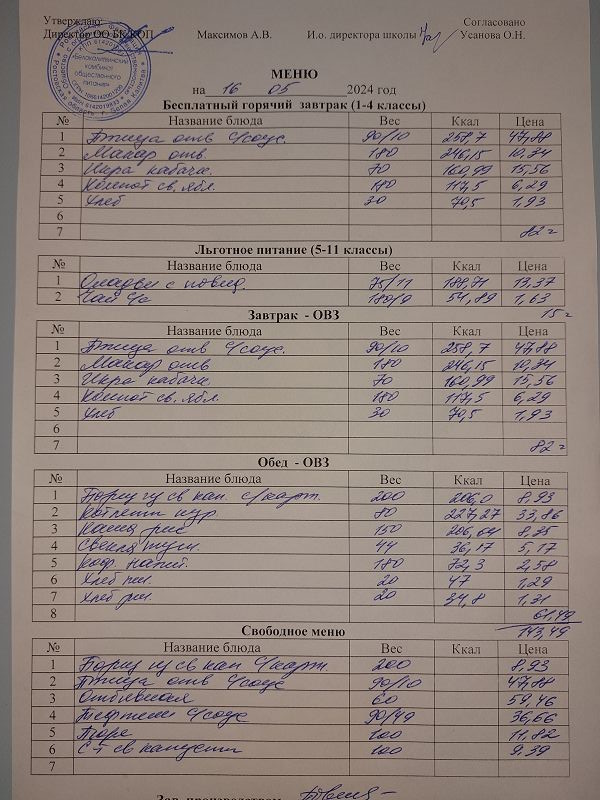 Утверждаю: Согласовано
Директор ОО БК КОП Максимов А.В. И.о. директора школы Усанова О.Н.
МЕНЮ
на 16 05 2024 год
Бесплатный горячий завтрак (1-4 классы)
№ Название блюда Вес Ккал Цена
1 Птица отв с/соус. 90/10 258,7 47,88
2 Макар отв. 180 246,15 10,34
3 Икра кабачк. 70 160,99 15,56
4 Компот св. ябл. 180 117,5 6,29
5 Хлеб 30 70,5 1,93
6
7 82=
Льготное питание (5-11 классы)
№ Название блюда Вес Ккал Цена
1 Оладьи с повид. 75/11 188,71 13,37
2 Чай с/с 180/9 54,89 1,63
15=
Завтрак - ОВЗ
№ Название блюда Вес Ккал Цена
1 Птица отв с/соус. 90/10 258,7 47,88
2 Макар отв 180 246,15 10,34
3 Икра кабачк. 70 160,99 15,56
4 Компот св. ябл. 180 117,5 6,29
5 Хлеб 30 70,5 1,93
6
7 82=
Обед - ОВЗ
№ Название блюда Вес Ккал Цена
1 Борщ из св кап. с/карт. 200 206,0 8,93
2 Котлеты кур. 80 227,27 33,86
3 Каша рис 150 206,04 8,35
4 Свекла туш. 44 36,17 5,17
5 Коф. напит. 180 72,3 2,58
6 Хлеб пш. 20 47 1,29
7 Хлеб рж. 20 34,8 1,31
8 61,49
143,49
Свободное меню
№ Название блюда Вес Ккал Цена
1 Борщ из св кап с/карт. 200 8,93
2 Птица отв с/соус 90/10 47,88
3 Отбивная 60 59,46
4 Тефтели с/соус 90/49 36,66
5 Пюре 100 11,82
6 С-т св капусты 100 9,39
7
Зав. производством